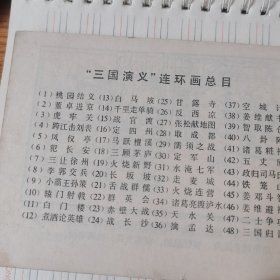 “三国演义”连环画总目
(1)桃园结义 (13)白马坡 (25)甘露寺 (37)空城计
(2)董卓进京 (14)千里走单骑 (26)反西凉 (38)姜维献书
(3)虎牢关 (15)战官渡 (27)张松献地图 (39)智取陈仓
(4)跨江击刘表 (16)定四州 (28)取成都 (40)八卦
(5)凤仪亭 (17)马跃檀溪 (29)濡须之战 (41)诸葛
(6)犯长安 (18)三顾茅庐 (30)定军山 (42)五丈
(7)三让徐州 (19)火烧新野 (31)水淹七军 (43)政归司马
(8)李郭交兵 (20)长坂坡 (32)走麦城 (44)铁笼山
(9)小霸王孙策 (21)舌战群儒 (33)火烧连营 (45)姜邓斗
(10)辕门射戟 (22)群英会 (34)诸葛亮觅泸水 (46)姜维避祸
(11)白门楼 (23)赤壁大战 (35)天水关 (47)二士争功
(12)煮酒论英雄 (24)战长沙 (36)擒孟达 (48)三国归